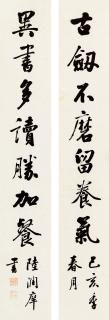 古劔不磨留養氣
己亥季
春月
異書多讀勝加餐
陸潤庠
書